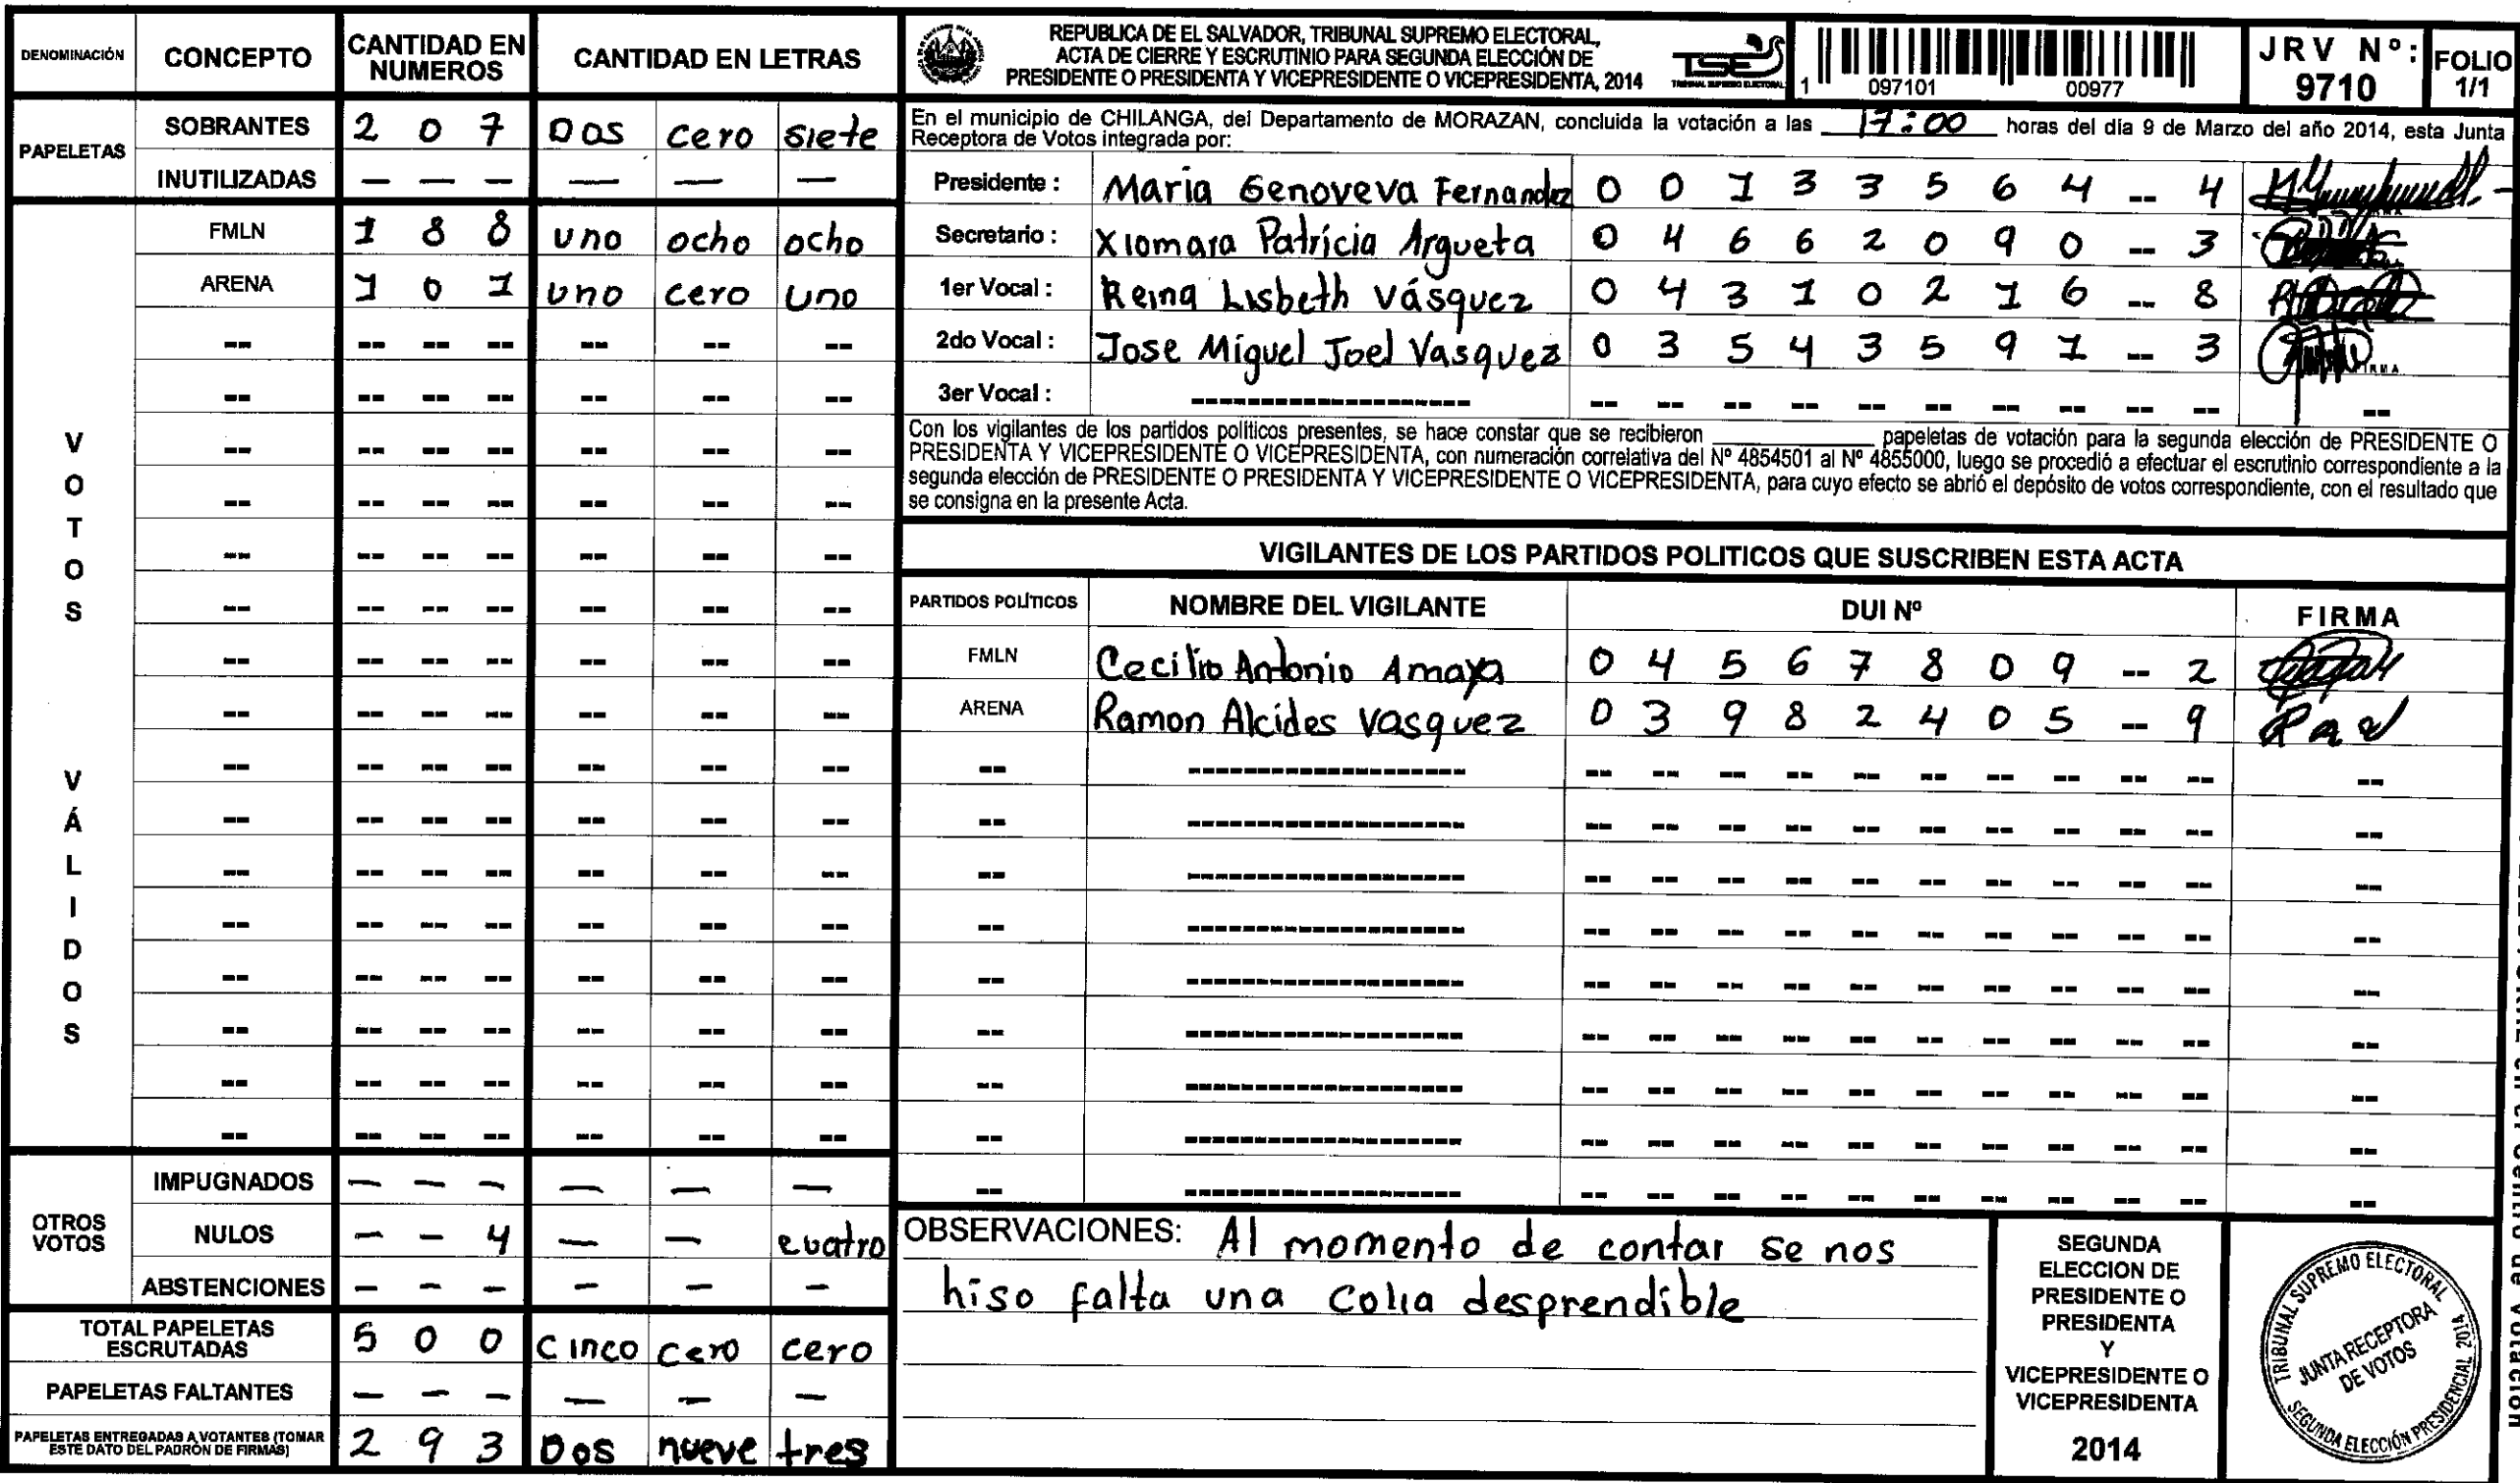 DENOMINACIÓN CONCEPTO CANTIDAD EN NUMEROS CANTIDAD EN LETRAS
PAPELETAS
SOBRANTES 2 0 7 Dos cero siete
INUTILIZADAS — — — — — —
VOTOS VÁLIDOS
FMLN 1 8 8 uno ocho ocho
ARENA 1 0 1 uno cero uno
OTROS VOTOS
IMPUGNADOS — — — — — —
NULOS — — 4 — — cuatro
ABSTENCIONES — — — — — —
TOTAL PAPELETAS ESCRUTADAS 5 0 0 cinco cero cero
PAPELETAS FALTANTES — — — — — —
PAPELETAS ENTREGADAS A VOTANTES (TOMAR ESTE DATO DEL PADRÓN DE FIRMAS) 2 9 3 Dos nueve tres
REPUBLICA DE EL SALVADOR, TRIBUNAL SUPREMO ELECTORAL,
ACTA DE CIERRE Y ESCRUTINIO PARA SEGUNDA ELECCIÓN DE
PRESIDENTE O PRESIDENTA Y VICEPRESIDENTE O VICEPRESIDENTA, 2014
TSE
TRIBUNAL SUPREMO ELECTORAL
1 097101 00977
JRV Nº: 9710
FOLIO 1/1
En el municipio de CHILANGA, del Departamento de MORAZAN, concluida la votación a las 17:00 horas del día 9 de Marzo del año 2014, esta Junta
Receptora de Votos integrada por:
Presidente : Maria Genoveva Fernandez 0 0 1 3 3 5 6 4 -- 4
Secretario : Xiomara Patricia Argueta 0 4 6 6 2 0 9 0 -- 3
1er Vocal : Reina Lisbeth Vásquez 0 4 3 1 0 2 1 6 -- 8
2do Vocal : Jose Miguel Joel Vasquez 0 3 5 4 3 5 9 1 -- 3
3er Vocal : --------------------
Con los vigilantes de los partidos políticos presentes, se hace constar que se recibieron ________ papeletas de votación para la segunda elección de PRESIDENTE O
PRESIDENTA Y VICEPRESIDENTE O VICEPRESIDENTA, con numeración correlativa del Nº 4854501 al Nº 4855000, luego se procedió a efectuar el escrutinio correspondiente a la
segunda elección de PRESIDENTE O PRESIDENTA Y VICEPRESIDENTE O VICEPRESIDENTA, para cuyo efecto se abrió el depósito de votos correspondiente, con el resultado que
se consigna en la presente Acta.
VIGILANTES DE LOS PARTIDOS POLITICOS QUE SUSCRIBEN ESTA ACTA
PARTIDOS POLÍTICOS NOMBRE DEL VIGILANTE DUI Nº FIRMA
FMLN Cecilio Antonio Amaya 0 4 5 6 7 8 0 9 -- 2
ARENA Ramon Alcides Vasquez 0 3 9 8 2 4 0 5 -- 9
OBSERVACIONES: Al momento de contar se nos
hiso falta una colia desprendible
SEGUNDA
ELECCION DE
PRESIDENTE O
PRESIDENTA
Y
VICEPRESIDENTE O
VICEPRESIDENTA
2014
TRIBUNAL SUPREMO ELECTORAL
JUNTA RECEPTORA
DE VOTOS
SEGUNDA ELECCIÓN PRESIDENCIAL 2014
en el Centro de Votación